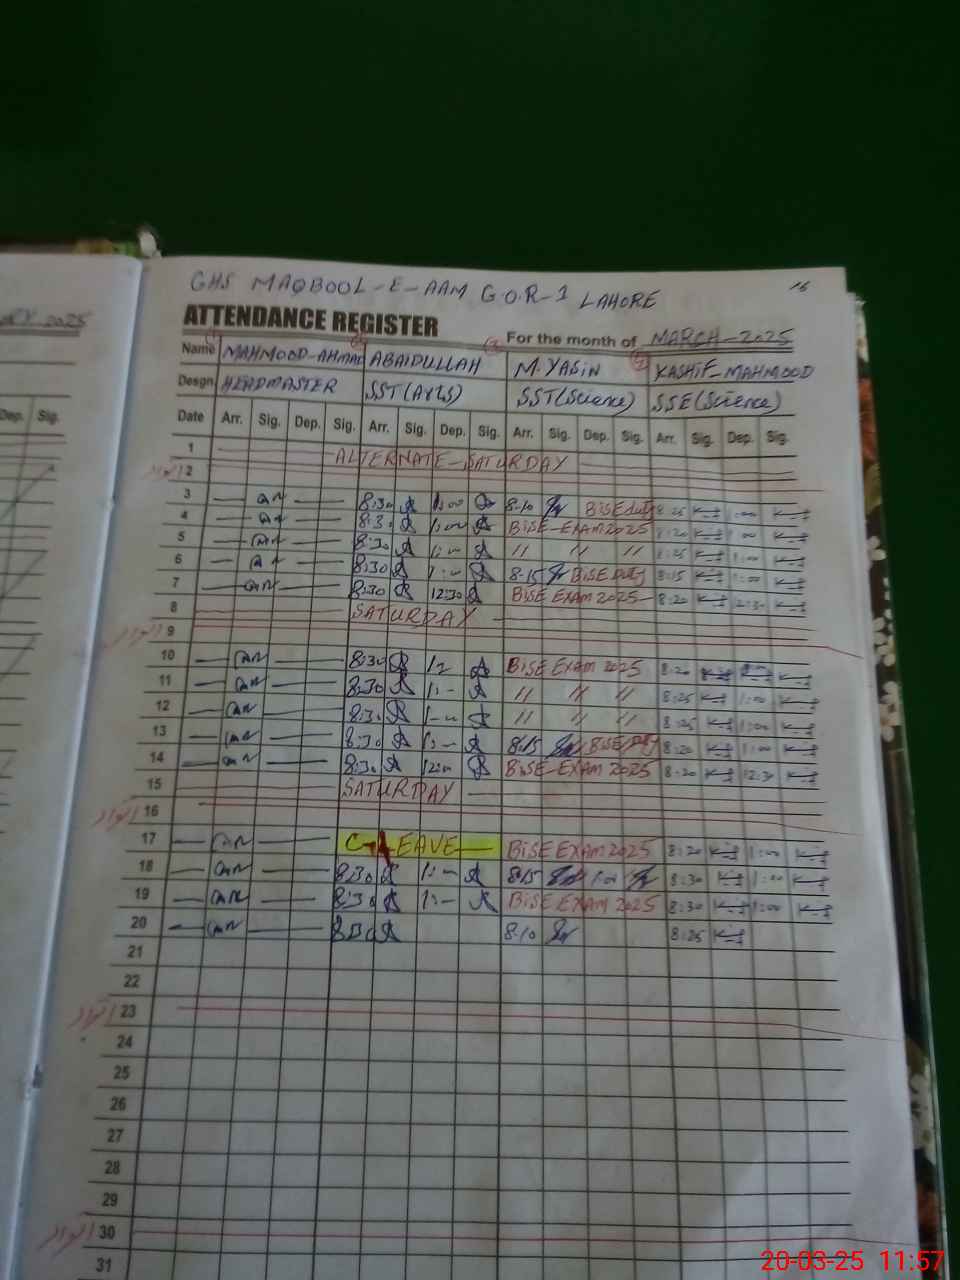 2025
GHS MAQBOOL-E-AAM G.O.R-1 LAHORE
16
ATTENDANCE REGISTER For the month of MARCH-2025
Name MAHMOOD-AHMAD ABAIDULLAH M.YASiN KASHIF-MAHMOOD
Desgn HEADMASTER SST(Arts) SST(Science) SSE(Science)
Dep. Sig. Date Arr. Sig. Dep. Sig. Arr. Sig. Dep. Sig. Arr. Sig. Dep. Sig. Arr. Sig. Dep. Sig.
1 ALTERNATE-SATURDAY
اتوار 2
3 8:30 1:00 8-10 BiSE duty 8:25 1:00
4 8:30 1:00 BISE-EXAM 2025 8:20 1:00
5 8:30 1:— // // // 8:25 1:00
6 8:30 1:00 8-15 BiSE Duty 8:15 1:00
7 8:30 12:30 BISE EXAM 2025 8:20 12:30
8 SATURDAY
اتوار 9
10 8:30 BISE EXAM 2025 8:20
11 8:30 1:— // // // 8:25 1:00
12 8:30 1— // // // 8:25 1:00
13 8:30 1:— 8:15 BiSE Duty 8:20 1:00
14 8:30 BISE-EXAM 2025 8:20 12:30
15 SATURDAY
اتوار 16
17 LEAVE BISE EXAM 2025 8:20 1:00
18 8:30 1:— 8:15 1:00 8:30 1:00
19 8:30 1:— BISE EXAM 2025 8:30 1:00
20 8:30 8-10 8:25
21
22
اتوار 23
24
25
26
27
28
29
اتوار 30
31
20-03-25 11:57